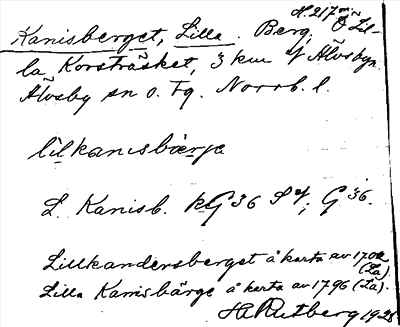 H. 217 m
Kanisberget, Lilla. Berg, Ö Lil-
la Korsträsket, 3 km Älvsbyn.
Älvsby sn o. tg. Norrb. l.
lilkanisbærje
L. Kanisb. kG 36 S G 36.
Lillkandersberget å karta av 1702
(La)
Lilla Kanisbärge å karta av 1796 (La).
H. Rutberg 1928